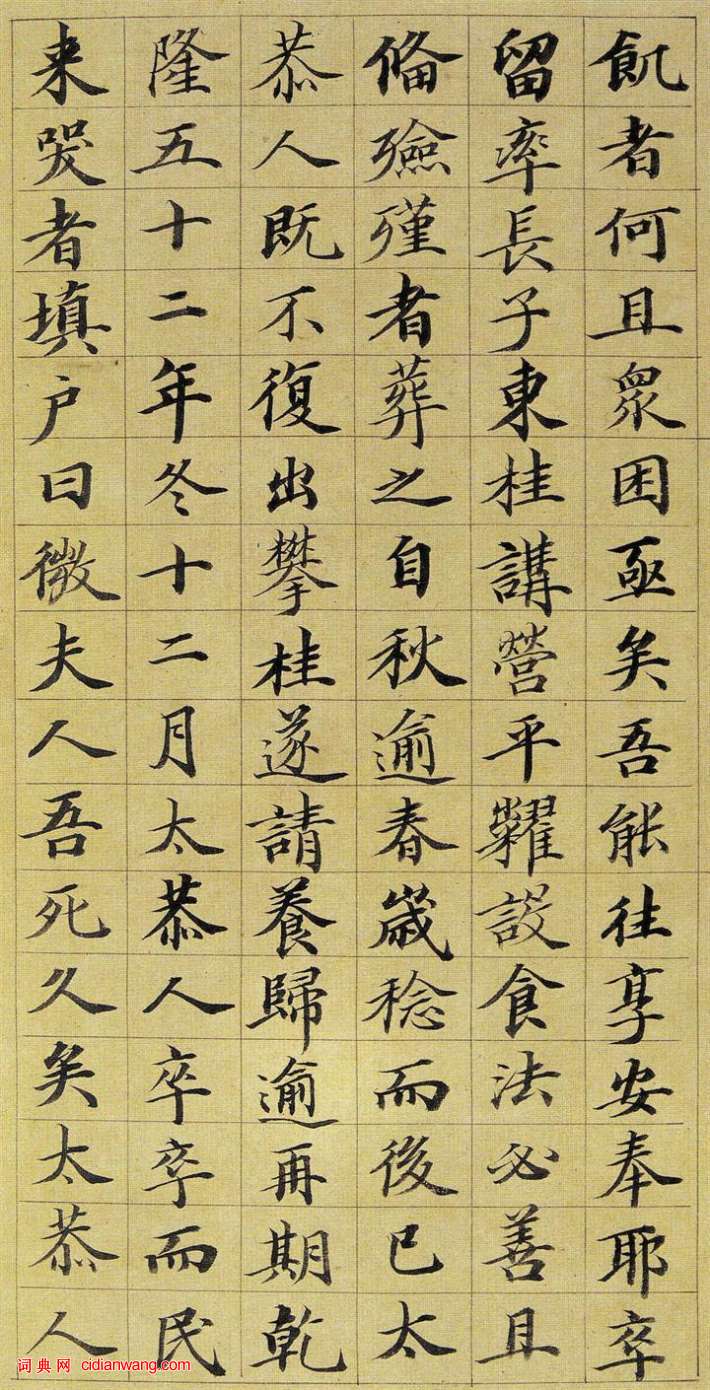 飢者何且眾困亟矣吾能往享安奉耶卒
留率長子東桂講營平糶設食法必善且
俻殮殣者葬之自秋逾春歲稔而後已太
恭人既不復出攀桂遂請養歸逾再期乾
隆五十二年冬十二月太恭人卒卒而民
来哭者填户曰微夫人吾死久矣太恭人
词典网 cidianwang.com